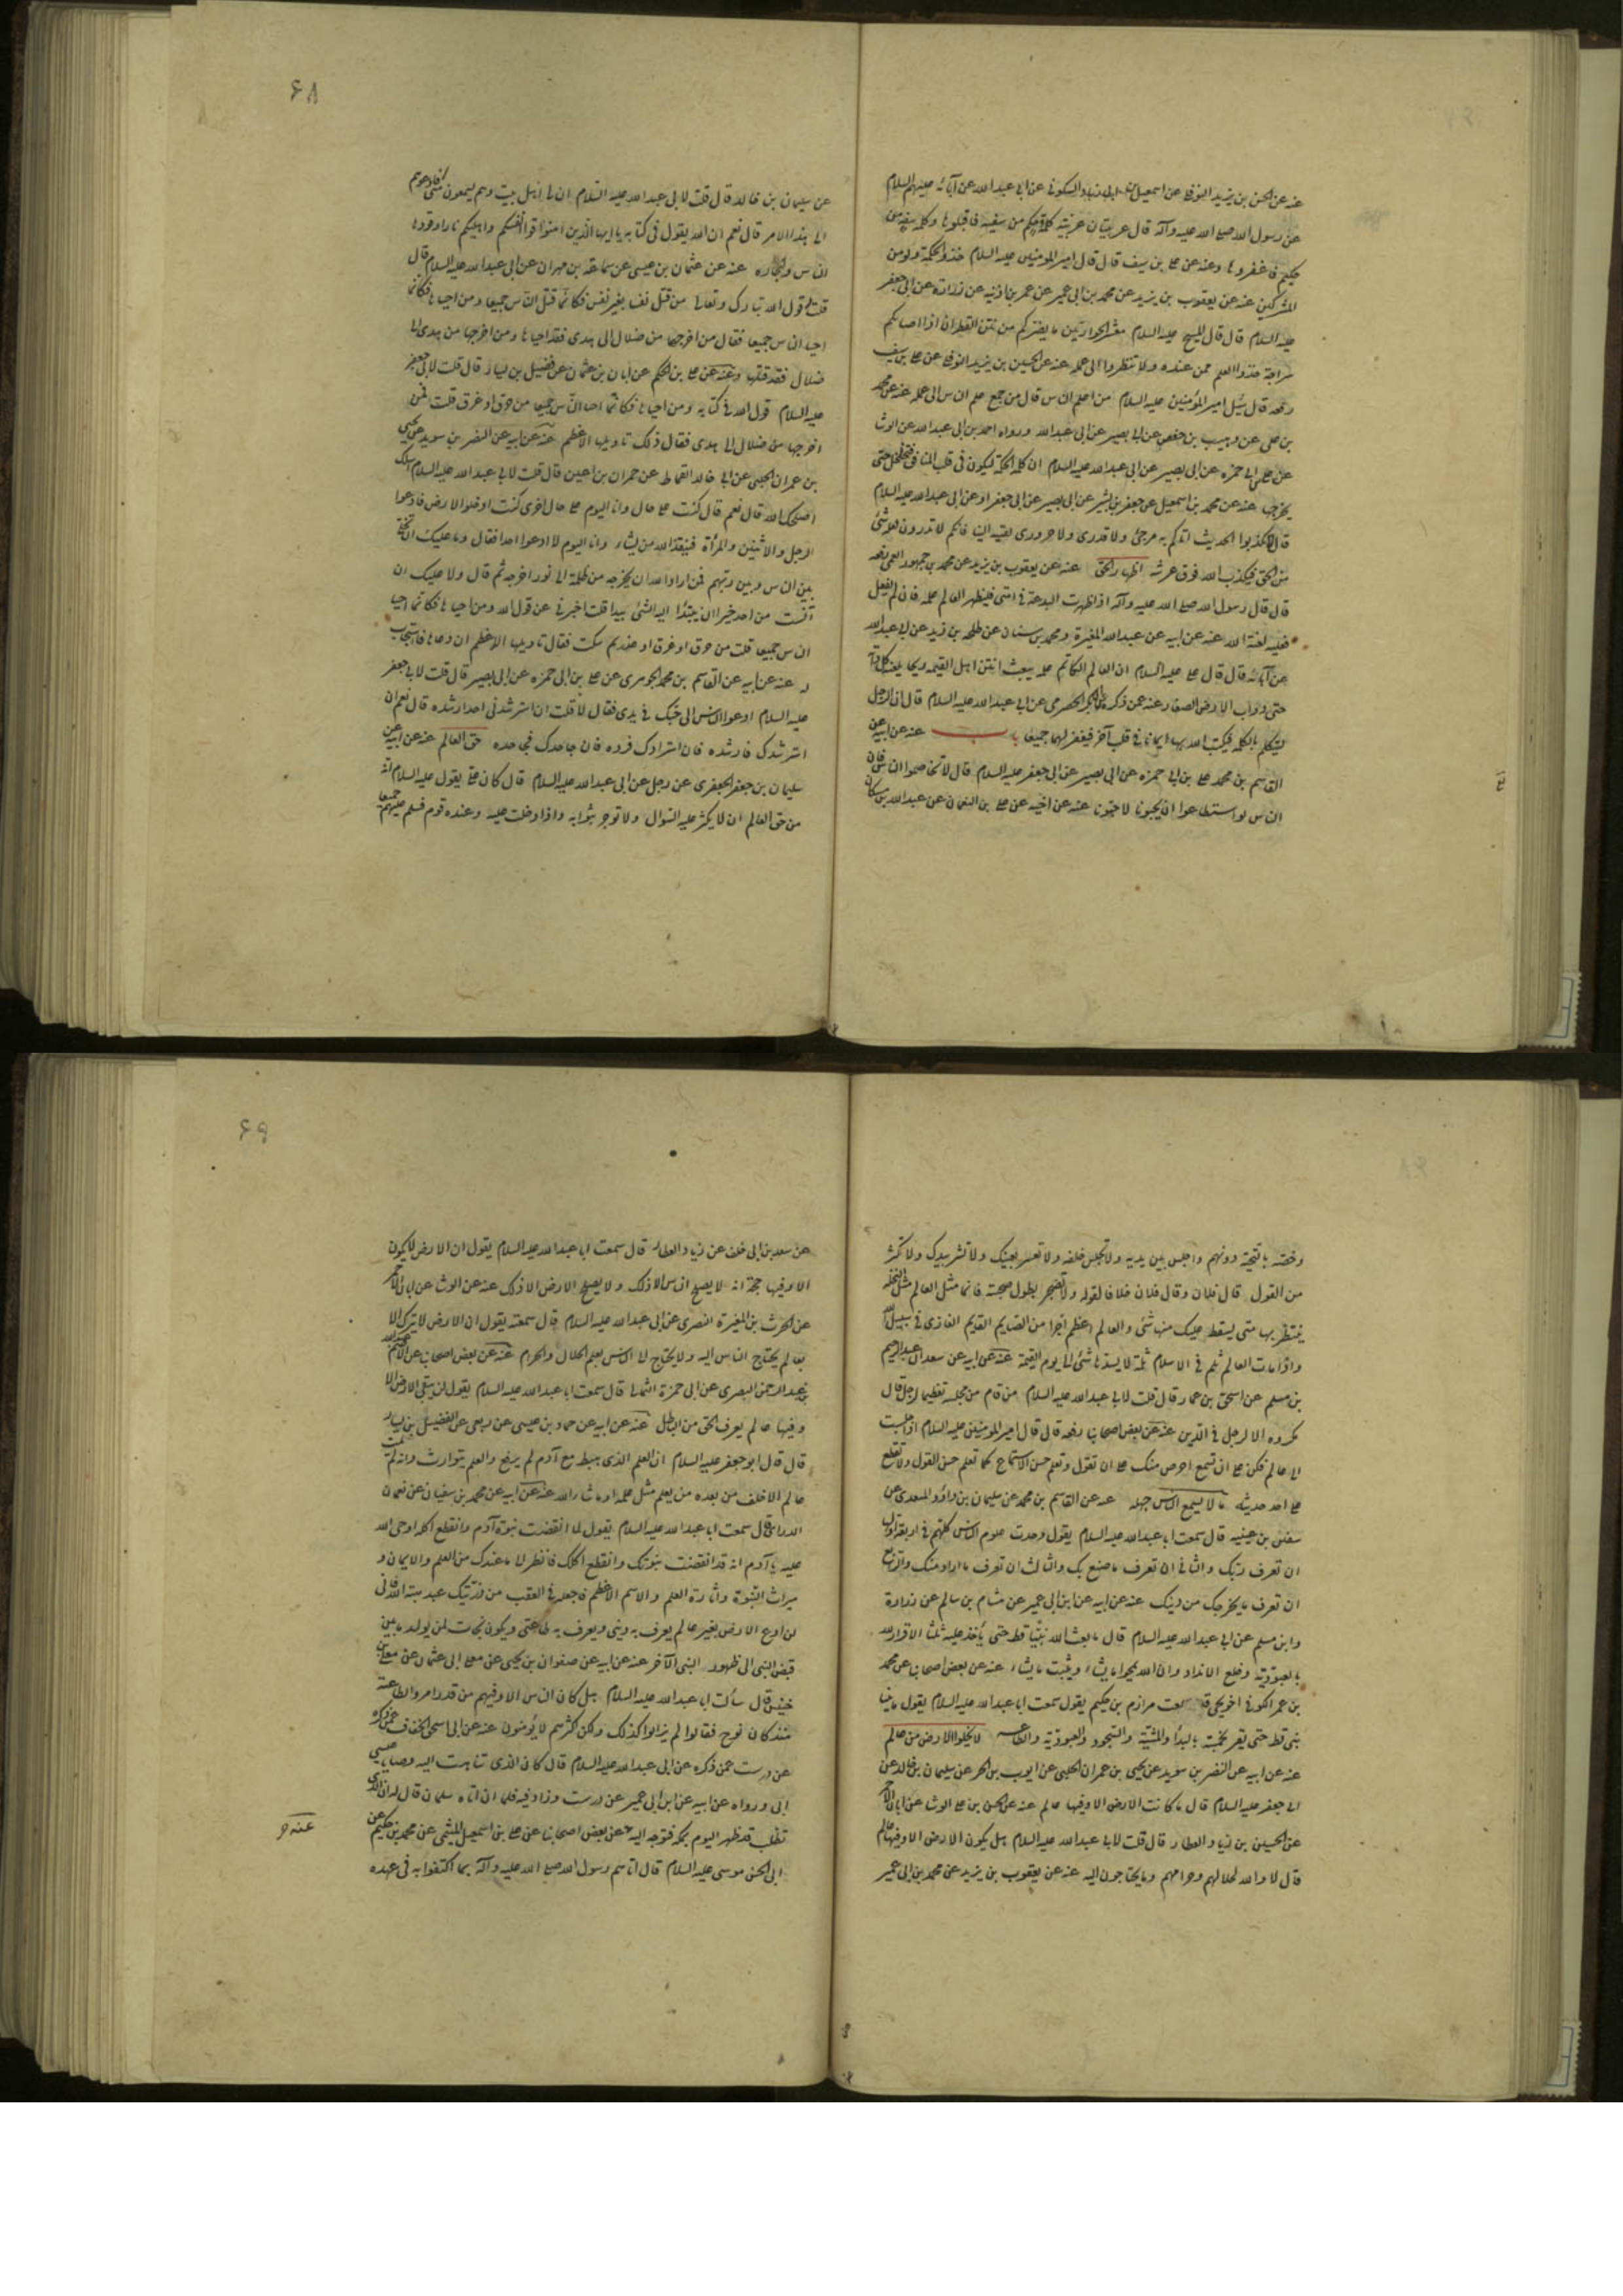 عنه عن الحسن بن يزيد النوفلى عن اسمعيل بن ابى زياد السكونى عن ابى عبد الله عن آبائه عليهم السلام
عن رسول الله صلى الله عليه وآله قال غريبتان غريبة كلمة حكيم من سفيه فاقبلوها وكلمة سفيه من
حكيم فاغفروها وعنه عن على بن سيف قال قال امير المؤمنين عليه السلام خذوا الحكمة ولو من
المشركين عنه عن يعقوب بن يزيد عن محمد بن ابى عمير عن عمر بن اذينه عن زرارة عن ابى جعفر
عليه السلام قال قال المسيح عليه السلام معشر الحواريين ما يضركم من نتن القطران اذا اصابكم
سراجه خذوا العلم ممن عنده ولا تنظروا الى عمله عنه عن الحسين بن يزيد النوفلى عن على بن سيف
رفعه قال سئل امير المؤمنين عليه السلام من اعلم الناس قال من جمع علم الناس الى علمه عنه عن محمد
بن على عن وهيب بن حفص عن ابى بصير عن ابى عبد الله ورواه احمد بن ابى عبد الله عن الوشا
عن على بن ابى حمزه عن ابى بصير عن ابى عبد الله عليه السلام ان كلمة الحكمة ليكون فى قلب المنافق حتى
يخرجها عنه عن محمد بن اسمعيل عن جعفر بن بشير عن ابى بصير عن ابى جعفر او عن ابى عبد الله عليه السلام
قال لا تكذبوا الحديث اتاكم به مرجئ ولا قدرى ولا حرورى ينسبه الينا فانكم لا تدرون لعله شئ
من الحق فيكذب الله فوق عرشه اظهار الحق عنه عن يعقوب بن يزيد عن محمد بن جمهور العمى رفعه
قال قال رسول الله صلى الله عليه وآله اذا ظهرت البدعة فى امتى فليظهر العالم علمه فان لم يفعل
فعليه لعنة الله عنه عن ابيه عن عبد الله المغيرة ومحمد بن سنان عن طلحه بن زيد عن ابى عبد الله
عن آبائه قال قال على عليه السلام ان العالم الكاتم علمه يبعث انتن اهل القيمه ريحا يلعنه كل دابة
حتى دواب الارض الصغار وعنه عمن ذكره ابى بكر الحضرمى عن ابى عبد الله عليه السلام قال ان الرجل
ليتكلم بالكلمه فيكتب الله بها ايمانا فى قلب آخر فيغفر لهما جميعا باب عنه عن ابيه عن
القاسم بن محمد على بن ابى حمزه عن ابى بصير عن ابى جعفر عليه السلام قال لا تخاصموا الناس فان
الناس لو استطاعوا ان يحبونا لاحبونا عنه عن اخيه عن على بن النعمان عن عبد الله بن مسكان
۶۸
عن سليمان بن خالد قال قلت لابى عبد الله عليه السلام ان لى اهل بيت وهم يسمعون منى افادعوهم
الى هذا الامر قال نعم ان الله يقول فى كتابه يا ايها الذين امنوا قوا انفسكم واهليكم نارا وقودها
الناس والحجاره عنه عن عثمان بن عيسى عن سماعه بن مهران عن ابى عبد الله عليه السلام قال
قلت له قول الله تبارك وتعالى من قتل نفسا بغير نفس فكانما قتل الناس جميعا ومن احياها فكانما
احيا الناس جميعا فقال من اخرجها من ضلال الى هدى فقد احياها ومن اخرجها من هدى الى
ضلال فقد قتلها وعنه عن على بن الحكم عن ابان بن عثمان عن فضيل بن يسار قال قلت لابى جعفر
عليه السلام قول الله فى كتابه ومن احياها فكانما احيا الناس جميعا من حرق او غرق قلت فمن
اخرجها من ضلال الى هدى فقال ذلك تاويلها الاعظم عنه عن ابيه عن النضر بن سويد عن يحيى
بن عمران الحلبى عن ابى خالد القماط عن حمران بن اعين قال قلت لابى عبد الله عليه السلام اسئلك
اصلحك الله قال نعم قال كنت على حال وانا اليوم على حال اخرى كنت ادخل الارض فادعوا
الرجل والاثنين والمرأة فينقذ الله من يشاء وانا اليوم لا ادعوا احدا فقال وما عليك ان تخلى
بين الناس وبين ربهم فمن اراد الله ان يخرجه من ظلمة الى نور اخرجه ثم قال ولا عليك ان
آنست من احد خيرا ان ينبذ اليه الشئ نبذا قلت اخبرنى عن قول الله ومن احياها فكانما احيا
الناس جميعا قلت من حرق او غرق او غدر ثم سكت فقال تاويلها الاعظم ان دعاها فاستجاب
له عنه عن ابيه عن القاسم بن محمد الجوهرى عن على بن ابى حمزه عن ابى بصير قال قلت لابى جعفر
عليه السلام ادعوا الناس الى حبك فى يدى فقال لا قلت ان استرشدنى احد ارشده قال نعم ان
استرشدك فارشده فان استزادك فزده فان جاحدك فجاحده حق العالم عنه عن ابيه عن
سليمان بن جعفر الجعفرى عن رجل عن ابى عبد الله عليه السلام قال كان على يقول عليه السلام انه
من حق العالم ان لا يكثر عليه السوال ولا توجر بثوابه واذا دخلت عليه وعنده قوم فسلم عليهم جميعا
وخصه بالتحية دونهم واجلس بين يديه ولا تجلس خلفه ولا تعمز بعينك ولا تشر بيدك ولا تكثر
من القول قال فلان وقال فلان خلافا لقوله ولا تضجر بطول صحبته فانما مثل العالم مثل النخله
ينتظر بها متى يسقط عليك منها شئ والعالم اعظم اجرا من الصايم القايم الغازى فى سبيل الله
واذا مات العالم ثلم فى الاسلام ثلمة لا يسدها شئ الى يوم القيمة عنه عن ابيه عن سعدان عبد الرحيم
بن مسلم عن اسحق بن عمار قال قلت لابى عبد الله عليه السلام من قام من مجلسه تعظيما لرجل قال
مكروه الا لرجل فى الدين عنه عن بعض اصحابنا رفعه قال قال امير المؤمنين عليه السلام اذا جلست
الى عالم فكن على ان تسمع احرص منك على ان تقول وتعلم حسن الاستماع كما تعلم حسن القول ولا تقطع
على احد حديثه ما لا يسع الناس جهله عنه عن القاسم بن محمد عن سليمان بن داود المنقرى عن
سفين بن عيينه قال سمعت ابا عبد الله عليه السلام يقول وجدت علوم الناس كلهم فى اربعة اولها
ان تعرف ربك والثانى ان تعرف ما صنع بك والثالث ان تعرف ما اراد منك والرابع
ان تعرف ما يخرجك من دينك عنه عن ابيه عن ابن ابى عمير عن هشام بن سالم عن زرارة
وابن مسلم عن ابى عبد الله عليه السلام قال ما بعث الله نبيا قط حتى يأخذ عليه ثلثا الاقرار لله
بالعبودية وخلع الانداد وان الله يمحوا ما يشاء ويثبت ما يشاء عنه عن بعض اصحابنا عن محمد
بن عمر الكوفى اخو يحيى قال سمعت مرازم بن حكيم يقول سمعت ابا عبد الله عليه السلام يقول ما تنبا
نبى قط حتى يقر بخمسة بالبداء والمشية والسجود والعبودية والطاعه لا تخلوا الارض من عالم
عنه عن ابيه عن النضر بن سويد عن يحيى بن عمران الحلبى عن ايوب بن الحر عن سليمان بن خالد عن
ابى جعفر عليه السلام قال ما كانت الارض الا وفيها عالم عنه عن الحسن بن على الوشا عن ابان الاحمر
عن الحسين بن زياد العطار قال قلت لابى عبد الله عليه السلام هل يكون الارض الا وفيها عالم
قال لا والله لحلالهم وحرامهم وما يحتاجون اليه عنه عن يعقوب بن يزيد عن محمد بن ابى عمير
۶۹
عن سعد بن ابى خلف عن زياد العطار قال سمعت ابا عبد الله عليه السلام يقول ان الارض لا يكون
الا وفيها حجة انه لا يصلح الناس الا ذلك ولا يصلح الارض الا ذلك عنه عن الوشا عن ابان الاحمر
عن الحرث بن المغيرة النصرى عن ابى عبد الله عليه السلام قال سمعته يقول ان الارض لا تترك الا
بعالم يحتاج الناس اليه ولا يحتاج الى الناس يعلم الحلال والحرام عنه عن بعض اصحابنا عن
بن عبد الرحمن البصرى عن ابى حمزة الثمالى قال سمعت ابا عبد الله عليه السلام يقول لن يبقى الارض الا
وفيها عالم يعرف الحق من الباطل عنه عن ابيه عن حماد بن عيسى عن ربعى عن الفضيل بن يسار
قال قال ابو جعفر عليه السلام ان العلم الذى هبط مع آدم لم يرفع والعلم يتوارث وانه لم يمت
عالم الا خلف من بعده من يعلم مثل علمه او ما شاء الله عنه عن ابيه عن محمد بن سفيان عن نعمان
الرازى قال سمعت ابا عبد الله عليه السلام يقول لما انقضت نبوة آدم وانقطع اكله اوحى الله
عليه يا آدم انه قد انقضت نبوتك وانقطع اكلك فانظر الى ما عندك من العلم والايمان و
ميراث النبوة واثارة العلم والاسم الاعظم فاجعله فى العقب من ذريتك عند هبة الله فانى
لن ادع الارض بغير عالم يعرف به دينى ويعرف به طاعتى ويكون نجات لمن يولد ما بين
قبض النبى الى ظهور النبى الآخر عنه عن ابيه عن صفوان بن يحيى عن معلى ابى عثمان عن معلى بن
خنيس قال سألت ابا عبد الله عليه السلام هل كان الناس الا وفيهم من قد امروا بطاعته
منذ كان نوح فقال لم يزالوا كذلك ولكن اكثرهم لا يؤمنون عنه عن ابى اسحق الخفاف عمن ذكره
عن درست عمن ذكره عن ابى عبد الله عليه السلام قال كان الذى تناهت اليه وصايا عيسى
ابى ورواه عن ابيه عن ابن ابى عمير عن درست وزاد فيه فلما ان اتاه سلمان قال له ان الذى
تطلب قد ظهر اليوم بمكه فتوجه اليه عن بعض اصحابنا عن على بن اسمعيل الميثمى عن محمد بن حكيم عن
ابى الحسن موسى عليه السلام قال اتاهم رسول الله صلى الله عليه وآله بما اكتفوا به فى عهده